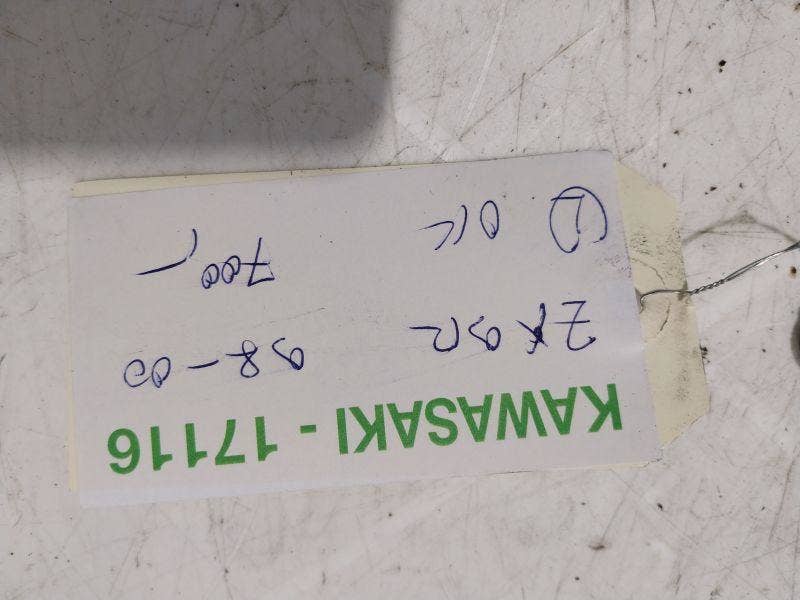 KAWASAKI - 17116
ZX9R 98-00
700,-
(L) OK